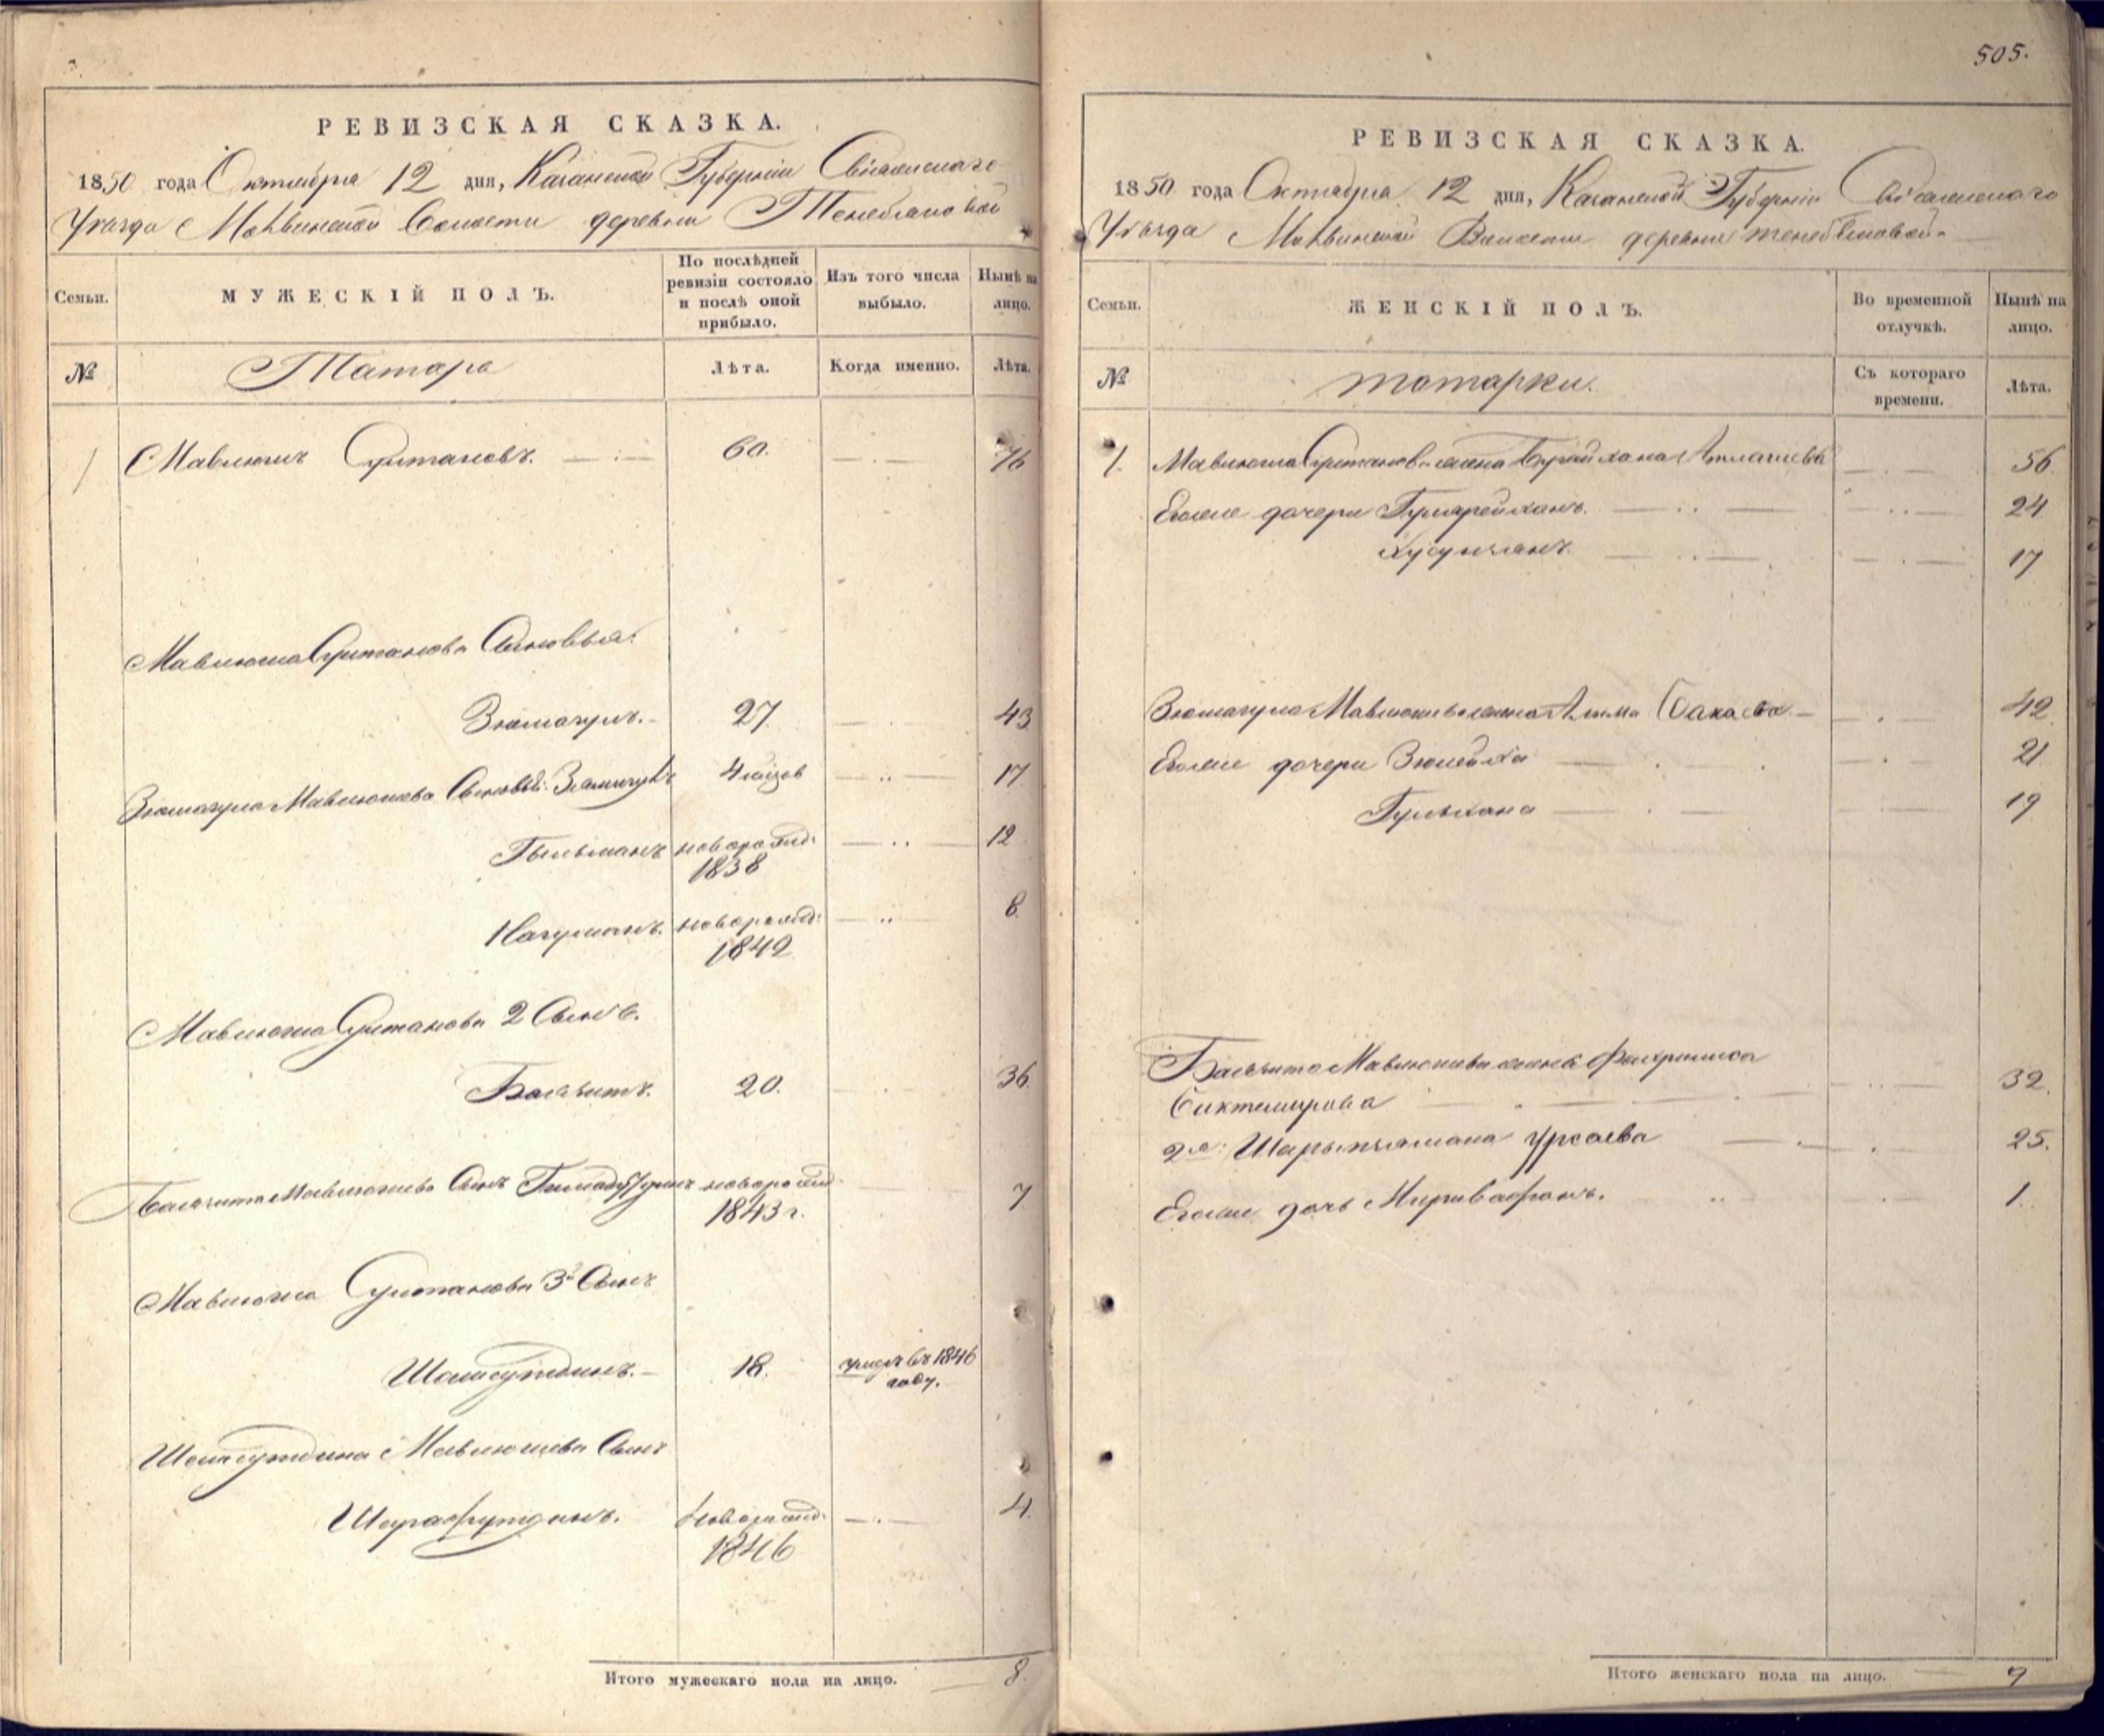 РЕВИЗСКАЯ СКАЗКА.
1850 года Октября 12 дня, Казанской Губернии Свіяжскаго
Уѣзда Волости деревни
Семьи.
МУЖЕСКІЙ ПОЛЪ.
По послѣдней ревизіи состояло и послѣ оной прибыло.
Изъ того числа выбыло.
Нынѣ на лицо.
№
Татара
Лѣта.
Когда именно.
Лѣта.
1 Мавлюшъ Султановъ. 60. 76
Мавлюша Султанова Сыновья:
Зюмагулъ. 27. 43
Зюмагула Мавлюшева Сыновья: 4 17
Гыльманъ новорожд: 12
1838
Нагуманъ. новорожд: 8
1842
Мавлюша Султанова 2 Сынъ.
Баязитъ. 20. 36
Баязита Мавлюшева Сынъ новорожд: 7
1843 г.
Мавлюша Султанова 3й Сынъ
Шамсутдинъ. 18. умеръ въ 1846
году.
Шамсутдина Мавлюшева Сынъ
Шарафутдинъ. новорожд: 4.
1846
Итого мужескаго пола на лицо. 8.
505.
РЕВИЗСКАЯ СКАЗКА.
1850 года Октября 12 дня, Казанской Губерніи Свіяжскаго
Уѣзда Волости деревни
Семьи.
ЖЕНСКІЙ ПОЛЪ.
Во временной отлучкѣ.
Нынѣ на лицо.
№
татарки.
Съ котораго времени.
Лѣта.
1. Мавлюша Султанова жена 56.
Егоже дочери 24
17
Зюмагула Мавлюшева жена Бакаева 42
Егоже дочери Зюлейха 21
Гульхана 19
Баязита Мавлюшева жена Фахриниса
Биктемирова 32.
2я: Урсаева 25.
Егоже дочь 1.
Итого женскаго пола на лицо. 9